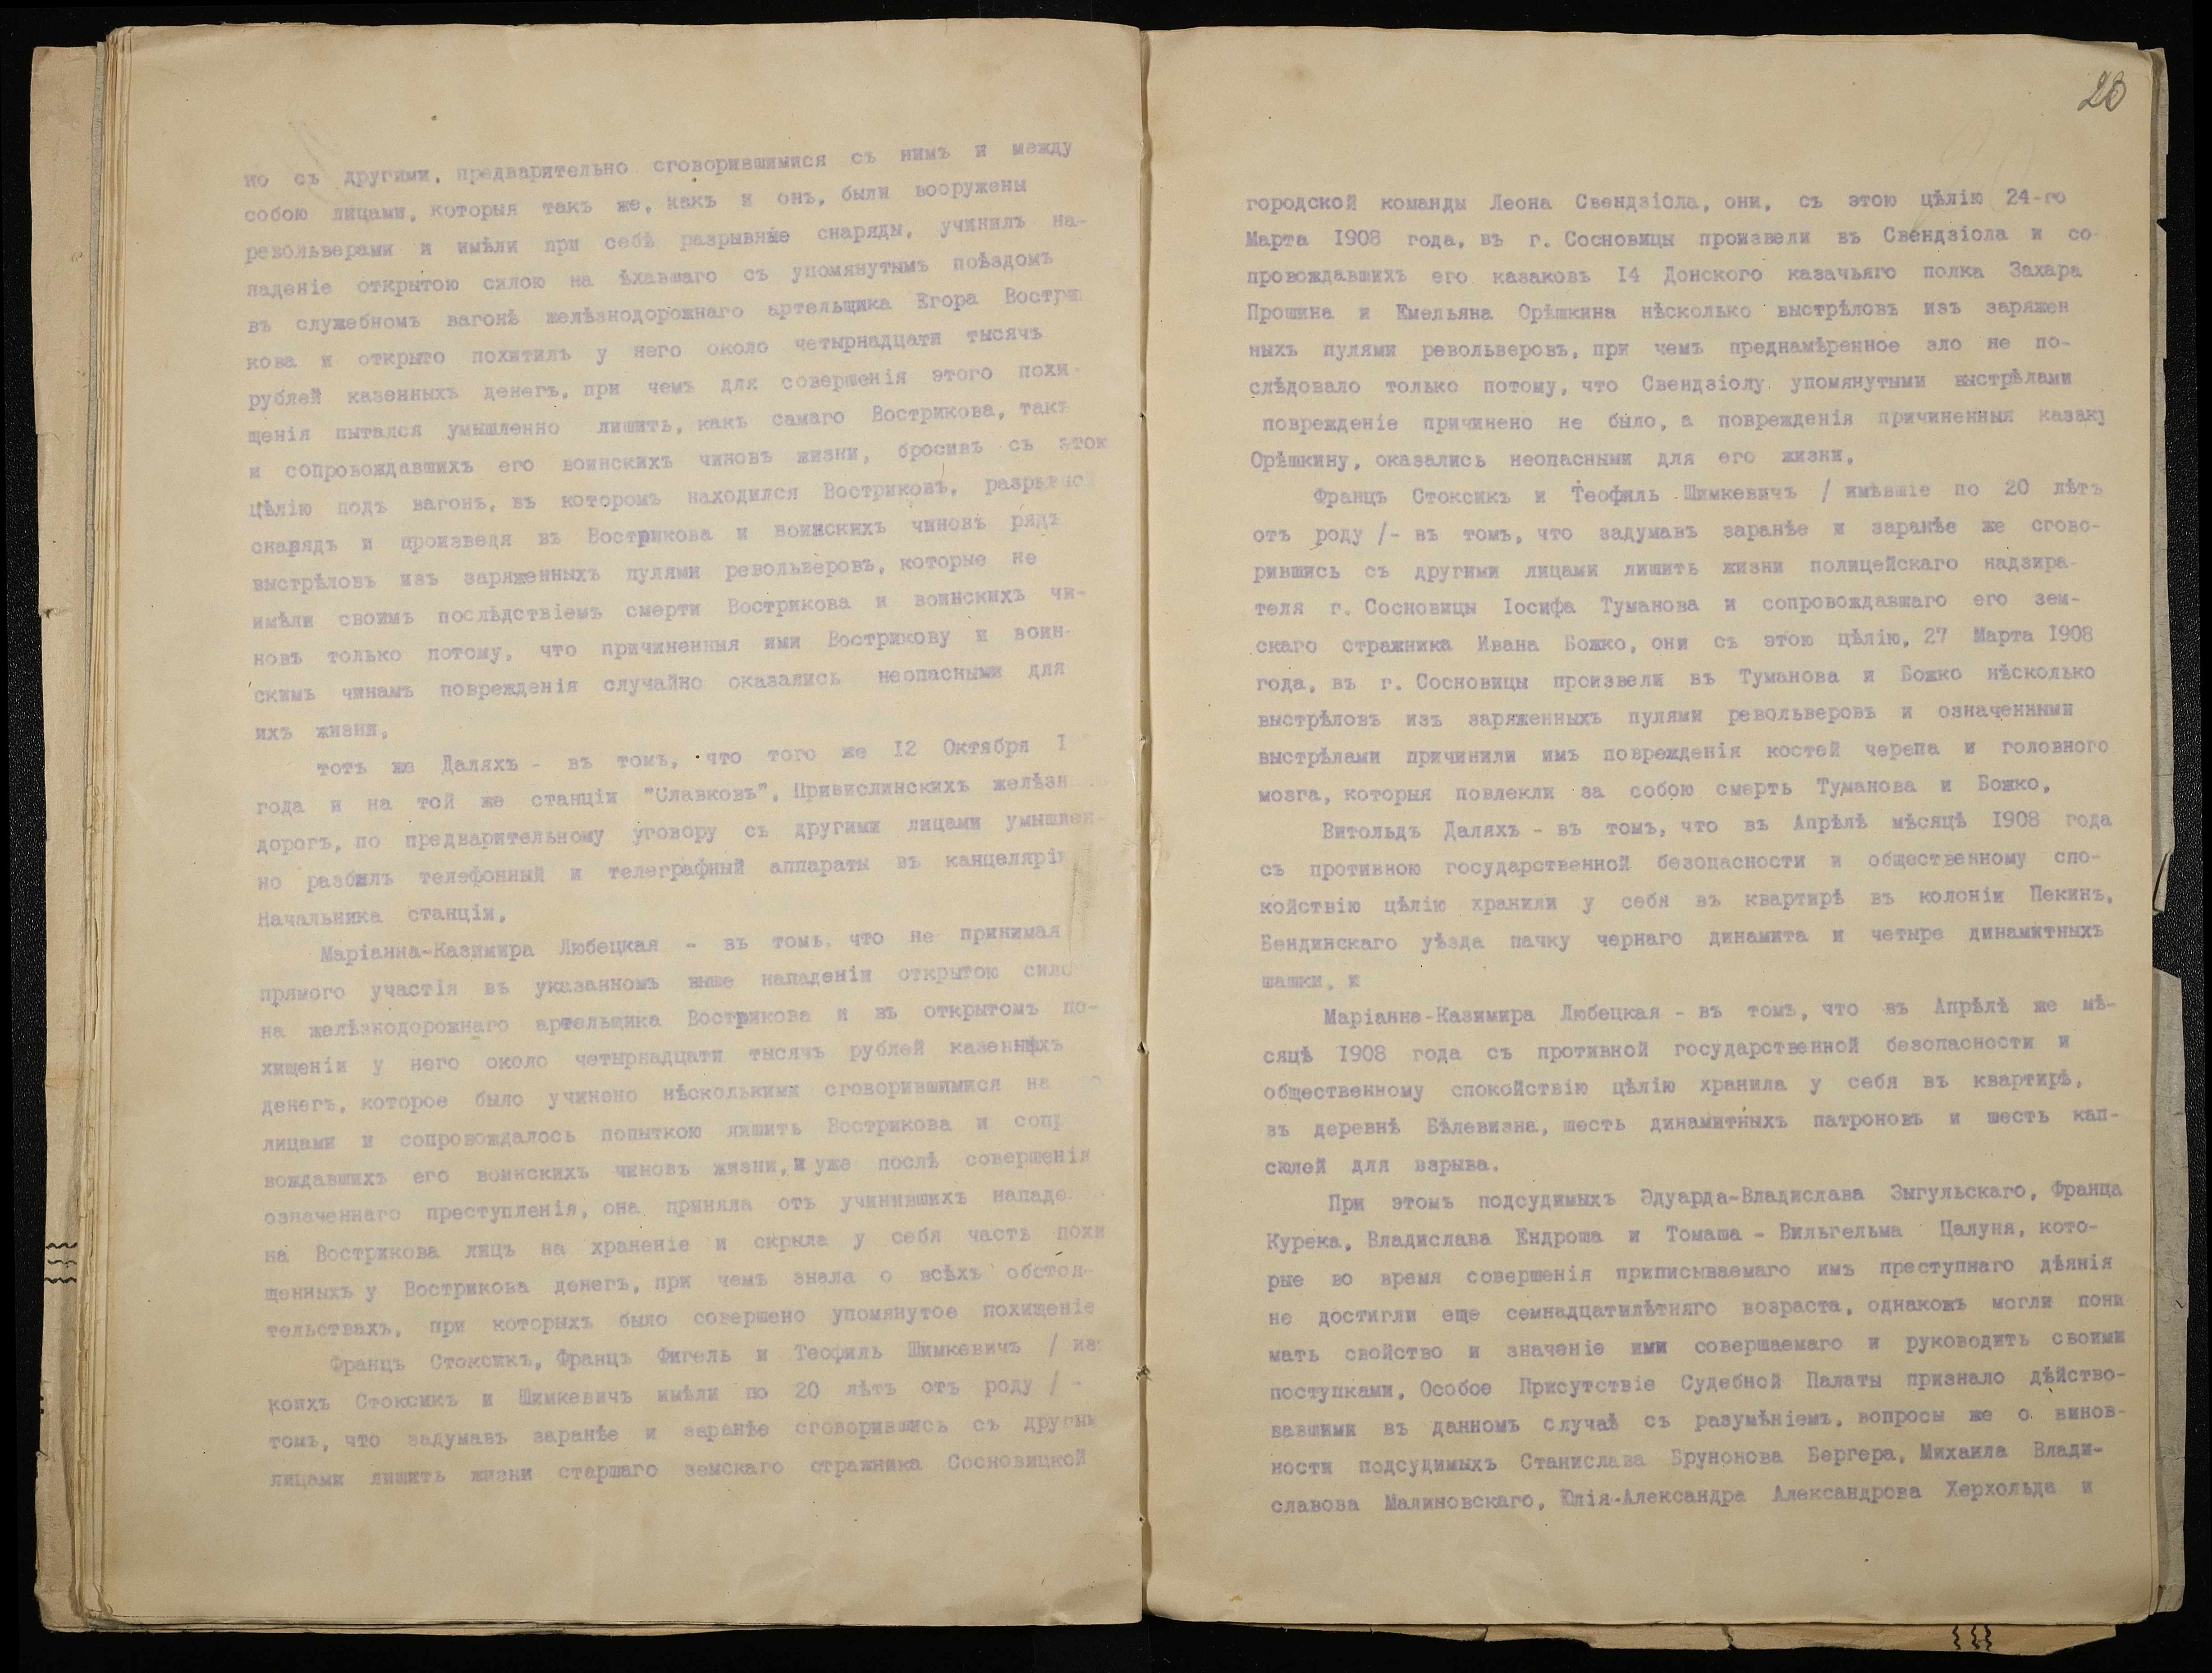 но съ другими, предварительно сговорившимися съ нимъ и между
собою лицами, которыя такъ же, какъ и онъ, были вооружены
револьверами и имѣли при себѣ разрывные снаряды, учинилъ на-
паденіе открытою силою на ѣхавшаго съ упомянутымъ поѣздомъ
въ служебномъ вагонѣ желѣзнодорожнаго артельщика Егора Востри
кова и открыто похитилъ у него около четырнадцати тысячъ
рублей казенныхъ денегъ, при чемъ для совершенія этого похи-
щенія пытался умышленно лишить, какъ самаго Вострикова, такъ
и сопровождавшихъ его воинскихъ чиновъ жизни, бросивъ съ этою
цѣлію подъ вагонъ, въ которомъ находился Востриковъ, разрывной
снарядъ и произведя въ Вострикова и воинскихъ чиновъ рядъ
выстрѣловъ изъ заряженныхъ пулями револьверовъ, которые не
имѣли своимъ послѣдствіемъ смерти Вострикова и воинскихъ чи-
новъ только потому, что причиненныя ими Вострикову и воин-
скимъ чинамъ поврежденія случайно оказались неопасными для
ихъ жизни,
тотъ же Даляхъ - въ томъ, что того же 12 Октября
года и на той же станціи "Славковъ", Привислинскихъ желѣзн
дорогъ, по предварительному уговору съ другими лицами умышлен-
но разбилъ телефонный и телеграфный аппараты въ канцеляріи
Начальника станціи,
Маріанна-Казимира Любецкая - въ томъ, что не принимая
прямого участія въ указанномъ выше нападеніи открытою сило
на желѣзнодорожнаго артельщика Вострикова и въ открытомъ по-
хищеніи у него около четырнадцати тысячъ рублей казенныхъ
денегъ, которое было учинено нѣсколькими сговорившимися на
лицами и сопровождалось попыткою лишить Вострикова и сопр
вождавшихъ его воинскихъ чиновъ жизни, и уже послѣ совершенія
означеннаго преступленія, она приняла отъ учинившихъ нападе
на Вострикова лицъ на храненіе и скрыла у себя часть похи
щенныхъ у Вострикова денегъ, при чемъ знала о всѣхъ обстоя-
тельствахъ, при которыхъ было совершено упомянутое похищеніе
Францъ Стоксикъ, Францъ Фигель и Теофиль Шимкевичъ / из
коихъ Стоксикъ и Шимкевичъ имѣли по 20 лѣтъ отъ роду / -
томъ, что задумавъ заранѣе и заранѣе сговорившись съ другими
лицами лишить жизни старшаго земскаго стражника Сосновицкой
23
городской команды Леона Свендзіола, они, съ этою цѣлію 24-го
Марта 1908 года, въ г. Сосновицы произвели въ Свендзіола и со
провождавшихъ его казаковъ 14 Донского казачьяго полка Захара
Прошина и Емельяна Орѣшкина нѣсколько выстрѣловъ изъ заряжен
ныхъ пулями револьверовъ, при чемъ преднамѣренное зло не по-
слѣдовало только потому, что Свендзіолу упомянутыми выстрѣлами
поврежденіе причинено не было, а поврежденія причиненныя казаку
Орѣшкину, оказались неопасными для его жизни,
Францъ Стоксикъ и Теофиль Шимкевичъ / имѣвшіе по 20 лѣтъ
отъ роду /- въ томъ, что задумавъ заранѣе и заранѣе же сгово-
рившись съ другими лицами лишить жизни полицейскаго надзира-
теля г. Сосновицы Іосифа Туманова и сопровождавшаго его зем-
скаго стражника Ивана Божко, они съ этою цѣлію, 27 Марта 1908
года, въ г. Сосновицы произвели въ Туманова и Божко нѣсколько
выстрѣловъ изъ заряженныхъ пулями револьверовъ и означенными
выстрѣлами причинили имъ поврежденія костей черепа и головного
мозга, которыя повлекли за собою смерть Туманова и Божко,
Витольдъ Даляхъ - въ томъ, что въ Апрѣлѣ мѣсяцѣ 1908 года
съ противною государственной безопасности и общественному спо-
койствію цѣлію хранили у себя въ квартирѣ въ колоніи Пекинъ,
Бендинскаго уѣзда пачку чернаго динамита и четыре динамитныхъ
шашки, и
Маріанна-Казимира Любецкая - въ томъ, что въ Апрѣлѣ же мѣ-
сяцѣ 1908 года съ противной государственной безопасности и
общественному спокойствію цѣлію хранила у себя въ квартирѣ,
въ деревнѣ Бѣлевизна, шесть динамитныхъ патроновъ и шесть кап-
сюлей для взрыва.
При этомъ подсудимыхъ Эдуарда-Владислава Зыгульскаго, Франца
Курека, Владислава Ендроша и Томаша - Вильгельма Цалуня, кото-
рые во время совершенія приписываемаго имъ преступнаго дѣянія
не достигли еще семнадцатилѣтняго возраста, однакожъ могли пони
мать свойство и значеніе ими совершаемаго и руководить своими
поступками, Особое Присутствіе Судебной Палаты признало дѣйство-
вавшими въ данномъ случаѣ съ разумѣніемъ, вопросы же о винов-
ности подсудимыхъ Станислава Брунонова Бергера, Михаила Влади-
славова Малиновскаго, Юлія-Александра Александрова Херхольда и